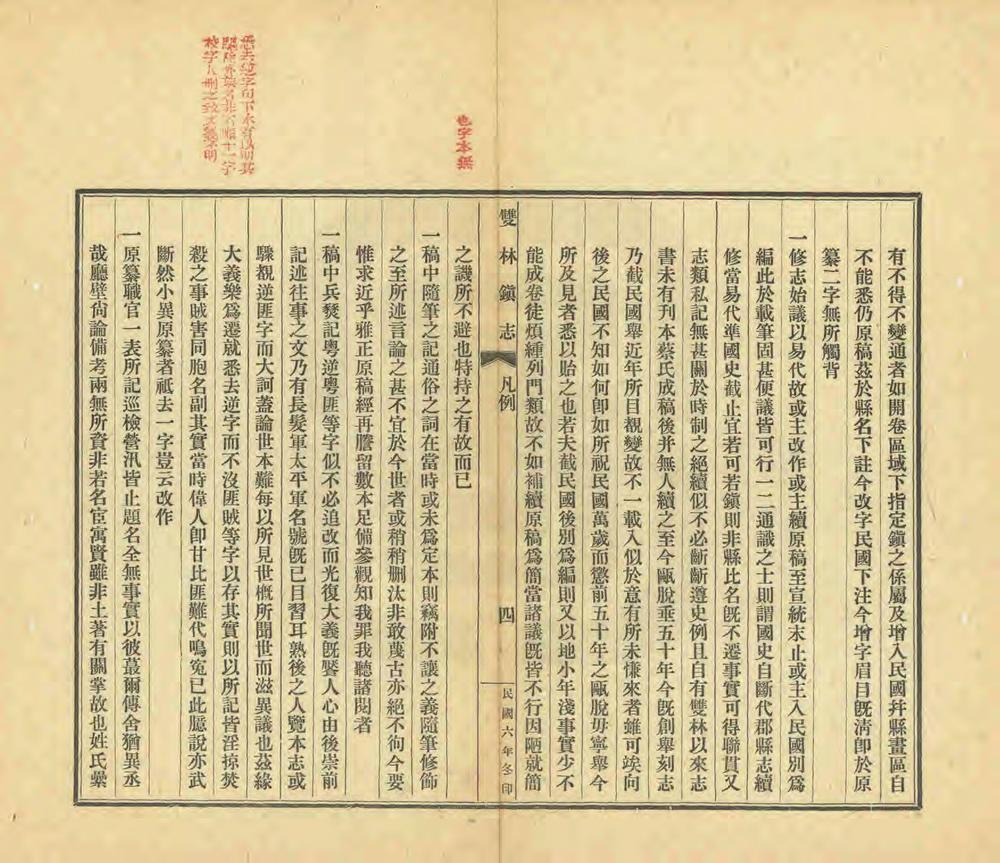 有不得不變通者如開卷區域下指定鎮之係屬及增入民國幷縣畫區自
不能悉仍原稿茲於縣名下註今改字民國下注今增字眉目旣淸卽於原
纂二字無所觸背
一修志始議以易代故或主改作或主續原稿至宣統末止或主入民國別爲
編此於載筆固甚便議皆可行一二通識之士則謂國史自斷代郡縣志續
修當易代準國史截止宜若可若鎭則非縣比名旣不遷事實可得聯貫又
志類私記無甚關於時制之絕續似不必齗齗遵史例且自有雙林以來志
書未有刊本蔡氏成稿後并無人續之至今甌脫垂五十年今旣創舉刻志
乃截民國舉近年所目覩變故不一載入似於意有所未慊來者雖可竢向
後之民國不知如何卽如所祝民國萬歲而懲前五十年之甌脫毋寧舉今
所及見者悉以貽之也若夫截民國後別爲編則又以地小年淺事實少不
能成卷徒煩緟列門類故不如補續原稿爲簡當諸議旣皆不行因陋就簡
雙林鎭志 凡例 四 民國六年冬印
之譏所不避也特持之有故而已
一稿中隨筆之記通俗之詞在當時或未爲定本則竊附不讓之義隨筆修飾
之至所述言論之甚不宜於今世者或稍稍删汰非敢蔑古亦絕不徇今要
惟求近乎雅正原稿經再謄留數本足備參觀知我罪我聽諸閱者
一稿中兵燹記粵逆粵匪等字似不必追改而光復大義旣饜人心由後崇前
記述往事之文乃有長髮軍太平軍名號旣已目習耳熟後之人覽本志或
驟覩逆匪字而大訶蓋論世本難每以所見世槪所聞世而滋異議也茲緣
大義樂爲遷就悉去逆字而不沒匪賊等字以存其實則以所記皆淫掠焚
殺之事賊害同胞名副其實當時偉人卽甘比匪難代鳴寃已此臆說亦武
斷然小異原纂者祇去一字豈云改作
一原纂職官一表所記巡檢營汛皆止題名全無事實以彼蕞爾傳舍猶異丞
哉廳壁尙論備考兩無所資非若名宦寓賢雖非土著有關掌故也姓氏纍
也字本無
悉去逆字句下本有以明其